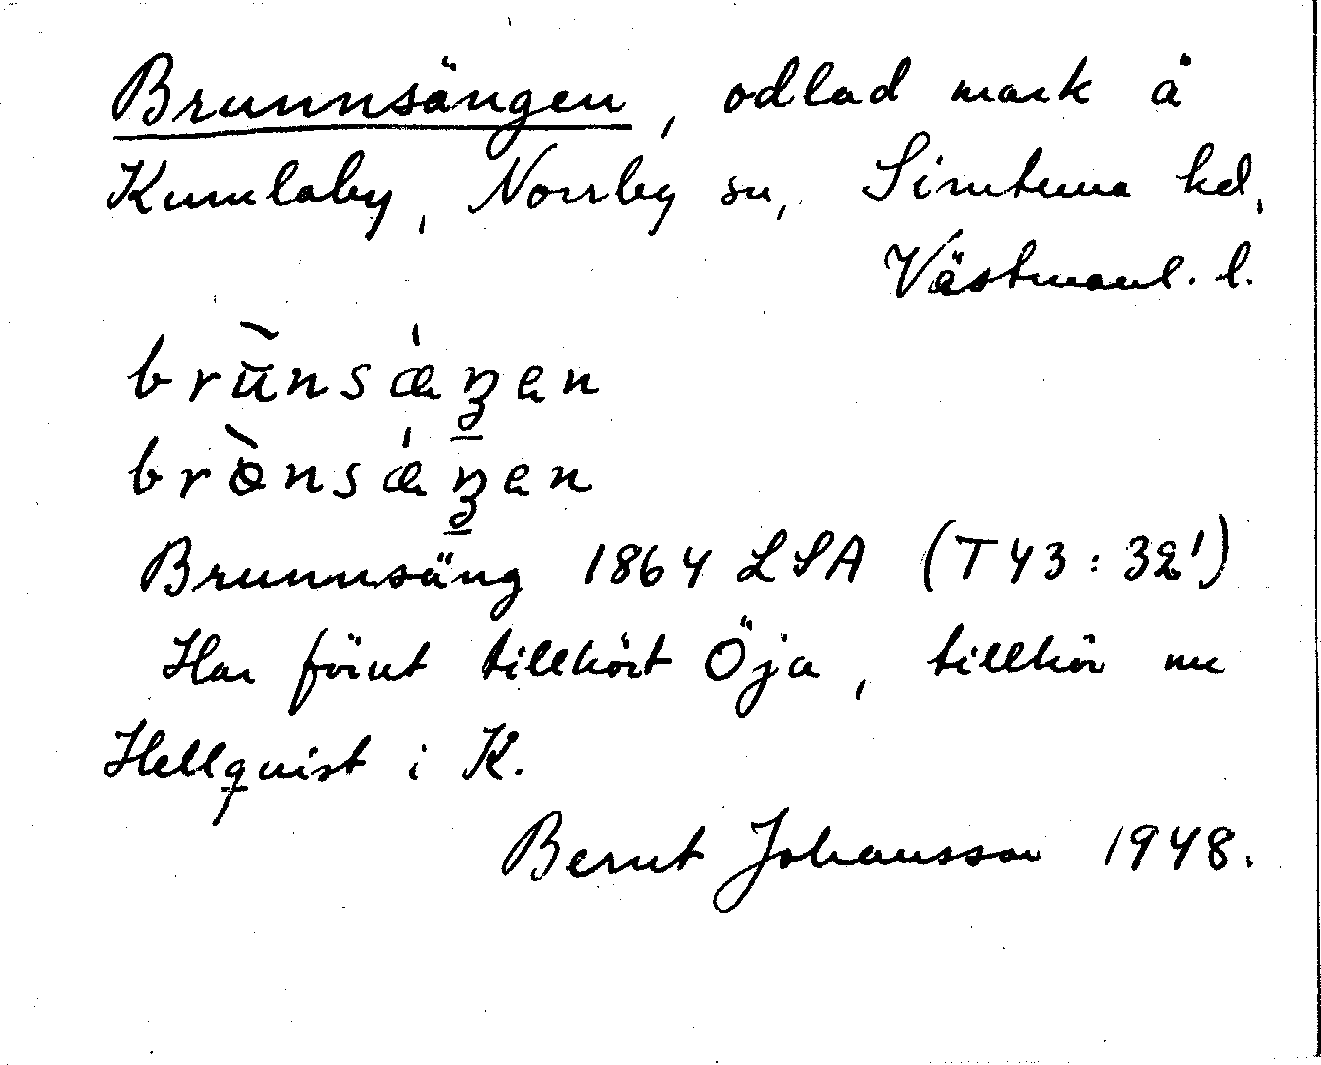 Brunnsängen, odlad mark å
Kumlaby, Norrby sn, Simtuna hd,
Västmanl. l.
brũnsǽŋen
brònsǽŋen
Brunnsäng 1864 LSA (T43:32¹)
Har förut tillhört Öja, tillhör nu
Hellquist i K.
Bernt Johansson 1948.